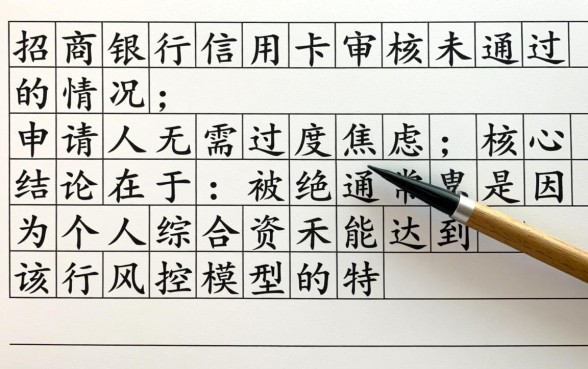 招商银行信用卡审核未通过
的情况；
申请人无需过度焦虑；核心
结论在于：被绝通常是因
为个人综合资禾能达到
该行风控模型的特